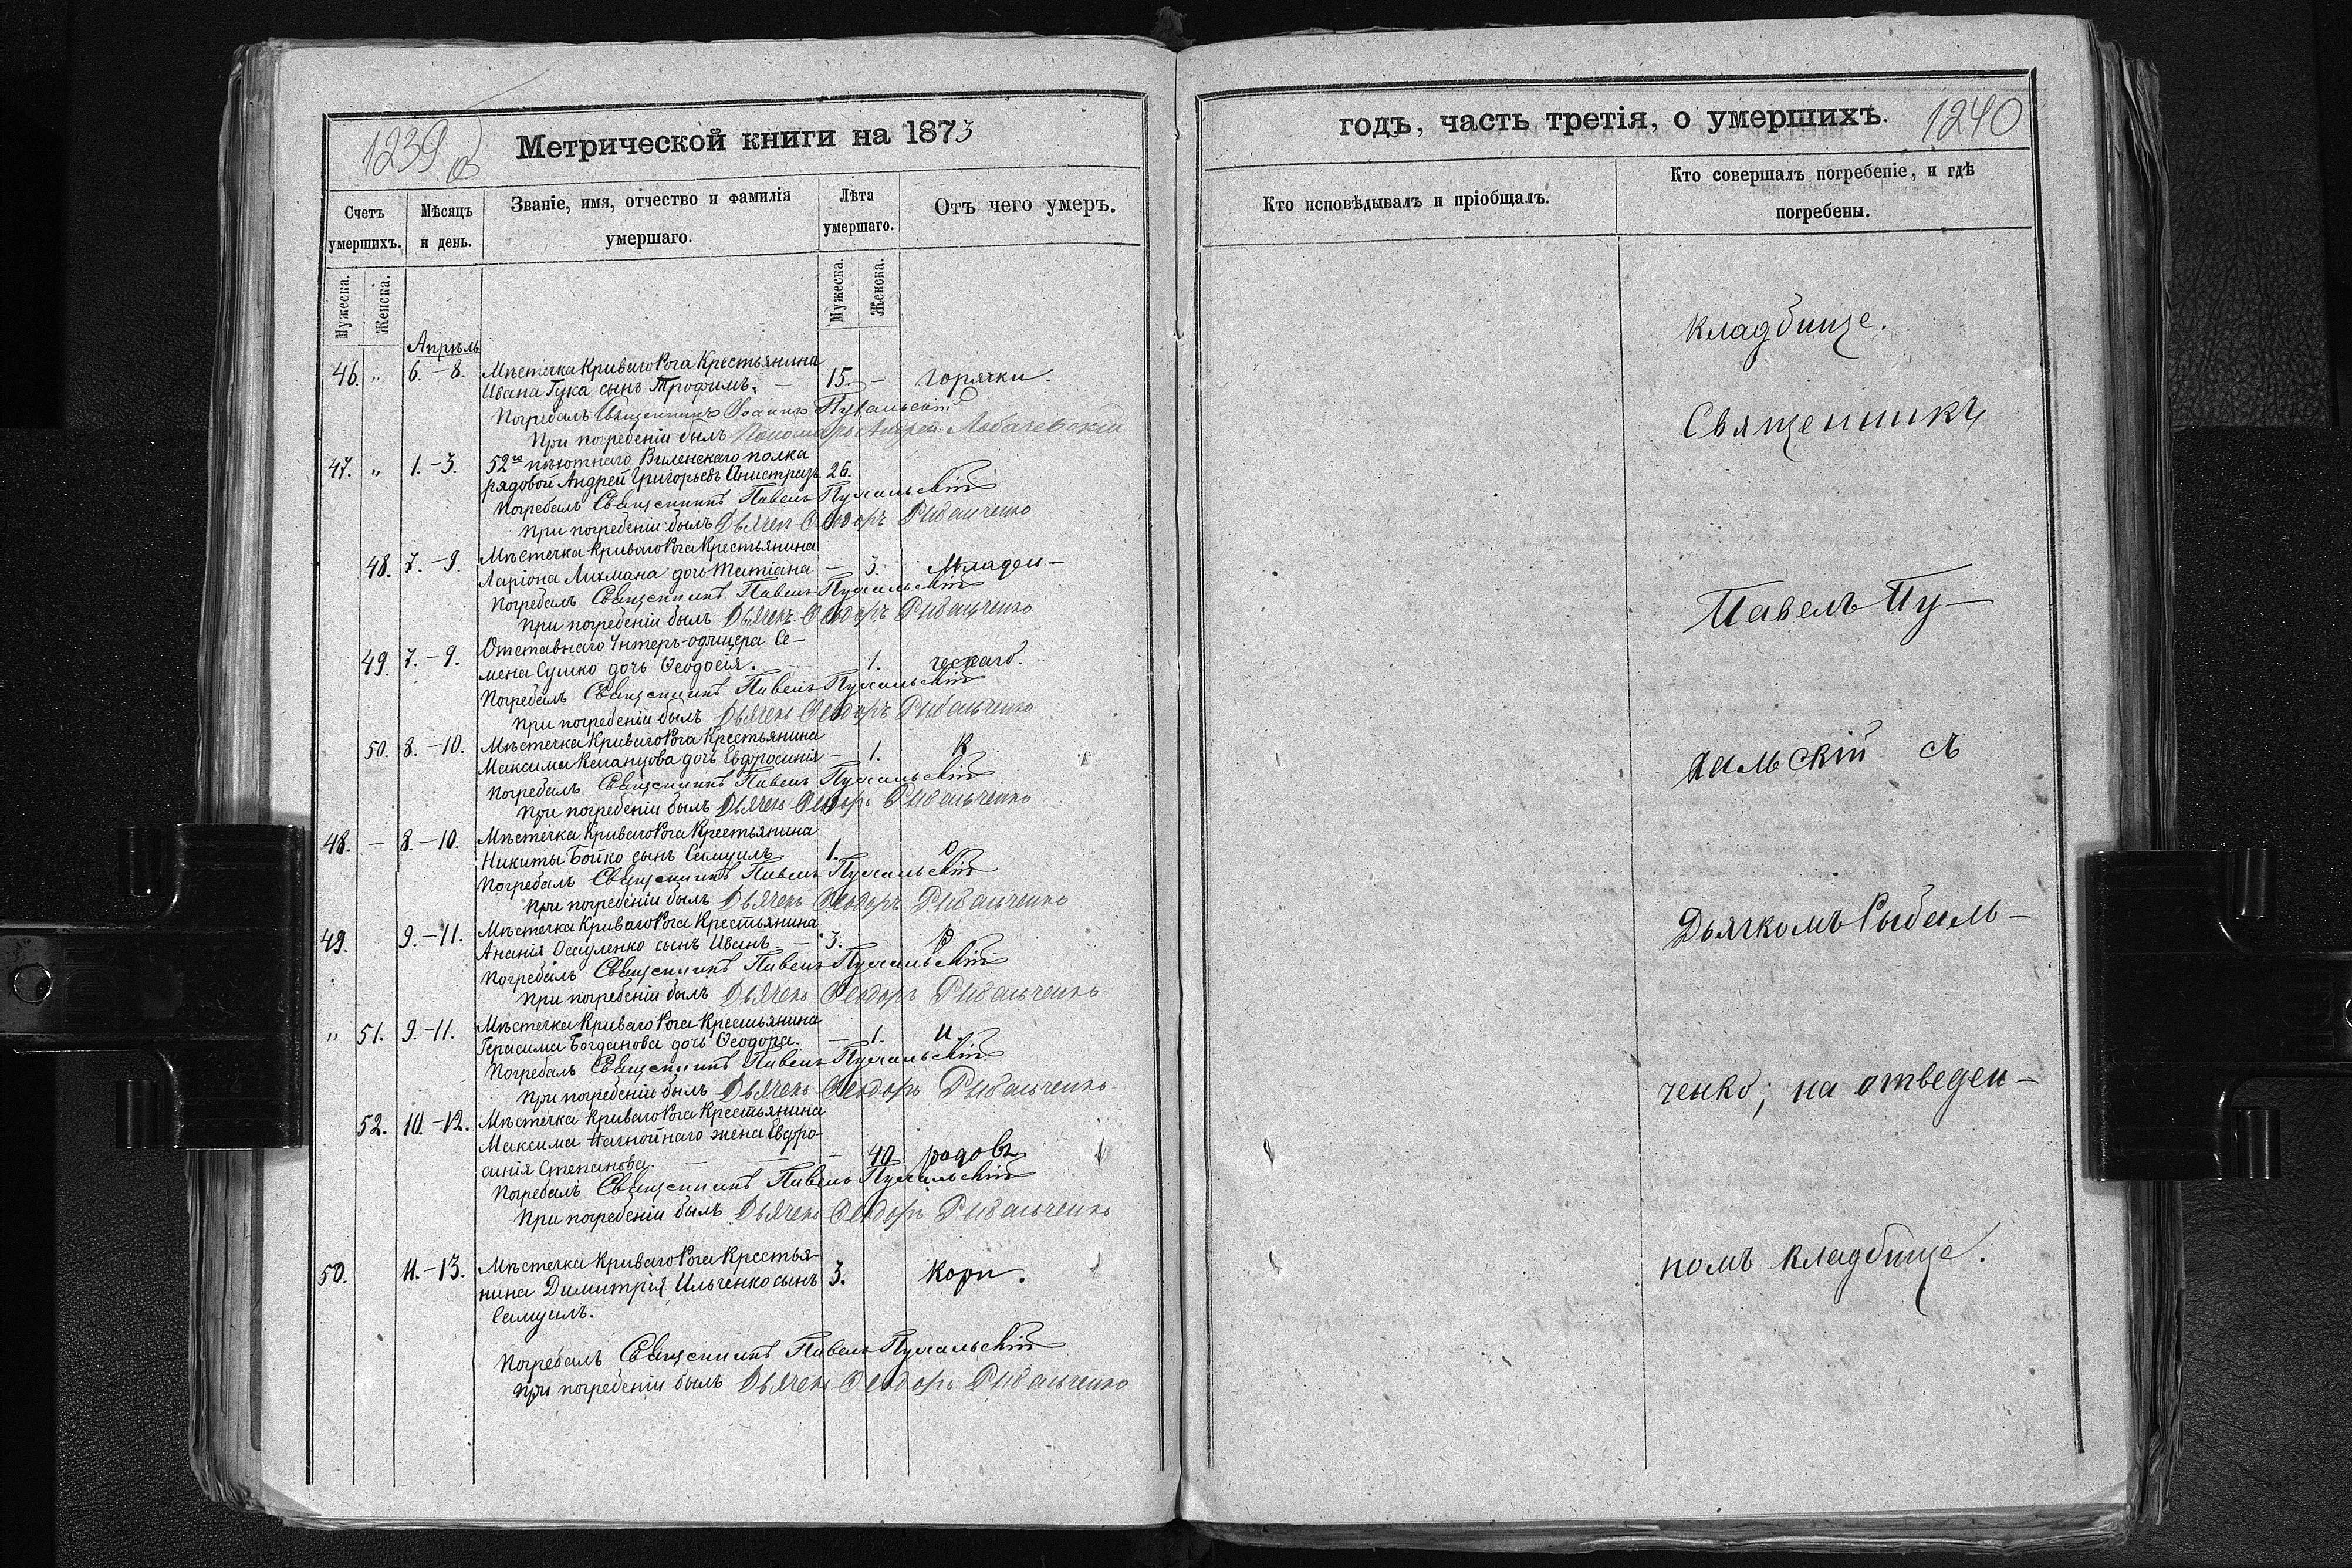 1239 об
Метрической книги на 1873
Счетъ умершихъ.
Мѣсяцъ и день.
Званіе, имя, отчество и фамилія умершаго.
Лѣта умершаго.
Отъ чего умеръ.
Мужеска.
Женска.
Мужеска.
Женска.
Апрѣль
46. „ 6.–8. Мѣстечка Криваго Рога Крестьянина
Ивана Гука сынъ Трофимъ. — 15. – горячки.
Погребалъ Священникъ Іоаннъ Пухальскій
При погребеніи былъ Пономарь Андрей Лобачевскій
47. „ 1.–3. 52го пѣхотнаго Виленскаго полка
рядовой Андрей Григорьевъ 26.
Погребалъ Священникъ Павелъ Пухальскій
При погребеніи былъ Дьячекъ Ѳеодоръ Рыбальченко
48. 7.–9. Мѣстечка Криваго Рога Крестьянина
Ларіона Лихмана дочь Татіана — 3. Младен-
Погребалъ Священникъ Павелъ Пухальскій
При погребеніи былъ Дьячекъ Ѳеодоръ Рыбальченко
49. 7.–9. Отставнаго Унтеръ-офицера Се-
мена Сушко дочь Ѳеодосія. — 1. ческаго.
Погребалъ Священникъ Павелъ Пухальскій
При погребеніи былъ Дьячекъ Ѳеодоръ Рыбальченко
50. 8.–10. Мѣстечка Криваго Рога Крестьянина
Максима дочь Евфросинія — 1. К
Погребалъ Священникъ Павелъ Пухальскій
При погребеніи былъ Дьячекъ Ѳеодоръ Рыбальченко
48. — 8.–10. Мѣстечка Криваго Рога Крестьянина
Никиты Бойко сынъ Самуилъ 1. о
Погребалъ Священникъ Павелъ Пухальскій
При погребеніи былъ Дьячекъ Ѳеодоръ Рыбальченко
49. 9.–11. Мѣстечка Криваго Рога Крестьянина
Ананія Осауленко сынъ Иванъ. — 3. р
Погребалъ Священникъ Павелъ Пухальскій
При погребеніи былъ Дьячекъ Ѳеодоръ Рыбальченко
„ 51. 9.–11. Мѣстечка Криваго Рога Крестьянина
Герасима Богданова дочь Ѳеодора. — 1. и.
Погребалъ Священникъ Павелъ Пухальскій
При погребеніи былъ Дьячекъ Ѳеодоръ Рыбальченко
52. 10.–12. Мѣстечка Криваго Рога Крестьянина
Максима жена Евфро-
синія Степанова. — — — 40 родовъ
Погребалъ Священникъ Павелъ Пухальскій
При погребеніи былъ Дьячекъ Ѳеодоръ Рыбальченко
50. 11.–13. Мѣстечка Криваго Рога Крестья-
нина Димитрія Ильченко сынъ 3. Кори.
Самуилъ.
Погребалъ Священникъ Павелъ Пухальскій
При погребеніи былъ Дьячекъ Ѳеодоръ Рыбальченко
годъ, часть третія, о умершихъ.
1240
Кто исповѣдывалъ и пріобщалъ.
Кто совершалъ погребеніе, и гдѣ
погребены.
кладбище.
Священникъ
Павелъ Пу-
хальскій съ
Дьячкомъ Рыбаль-
ченко; на отведен-
номъ кладбище.